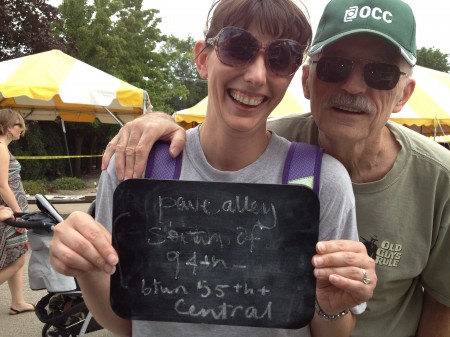 OCC
pave alley
South of
94th –
btwn 55th +
Central
OLD
GUYS
RULE